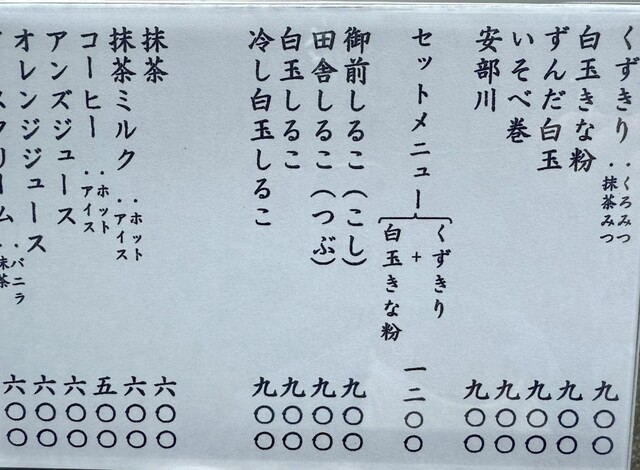 くずきり ・くろみつ ・抹茶みつ 九〇〇
白玉きな粉 九〇〇
ずんだ白玉 九〇〇
いそべ巻 九〇〇
安部川 九〇〇
セットメニュー くずきり + 白玉きな粉 一二〇〇
御前しるこ（こし） 九〇〇
田舎しるこ（つぶ） 九〇〇
白玉しるこ 九〇〇
冷し白玉しるこ 九〇〇
抹茶 六〇〇
抹茶ミルク ・ホット ・アイス 六〇〇
コーヒー ・ホット ・アイス 五〇〇
アンズジュース 六〇〇
オレンジジュース 六〇〇
アイスクリーム ・バニラ ・抹茶 六〇〇